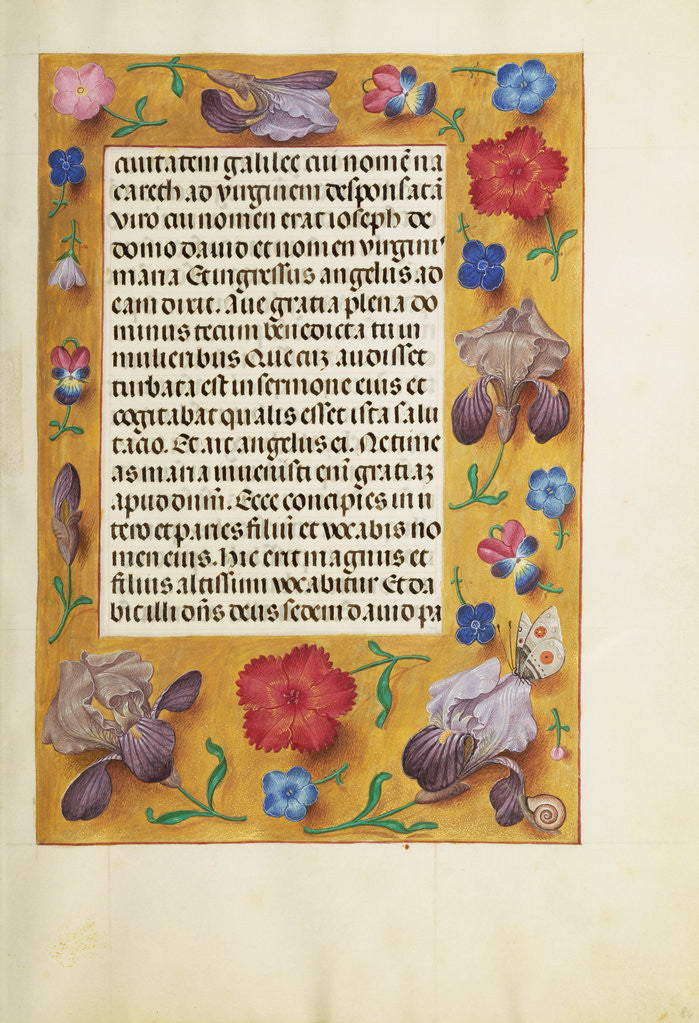 ciuitatem galilee cui nomē na
careth ad virginem desponsatā
viro cui nomen erat ioseph de
domo dauid et nomen virginis
maria Et ingressus angelus ad
eam dixit. Aue gratia plena do
minus tecum benedicta tu in
mulieribus Que cuz audisset
turbata est in sermone eius et
cogitabat qualis esset ista salu
tacio. Et ait angelus ei. Ne time
as maria inuenisti enī gratiaz
apud dūm. Ecce concipies in u
tero et paries filiū et vocabis no
men eius. Hic erit magnus et
filius altissimi vocabitur Et da
bit illi dn̄s deus sedem dauid pa